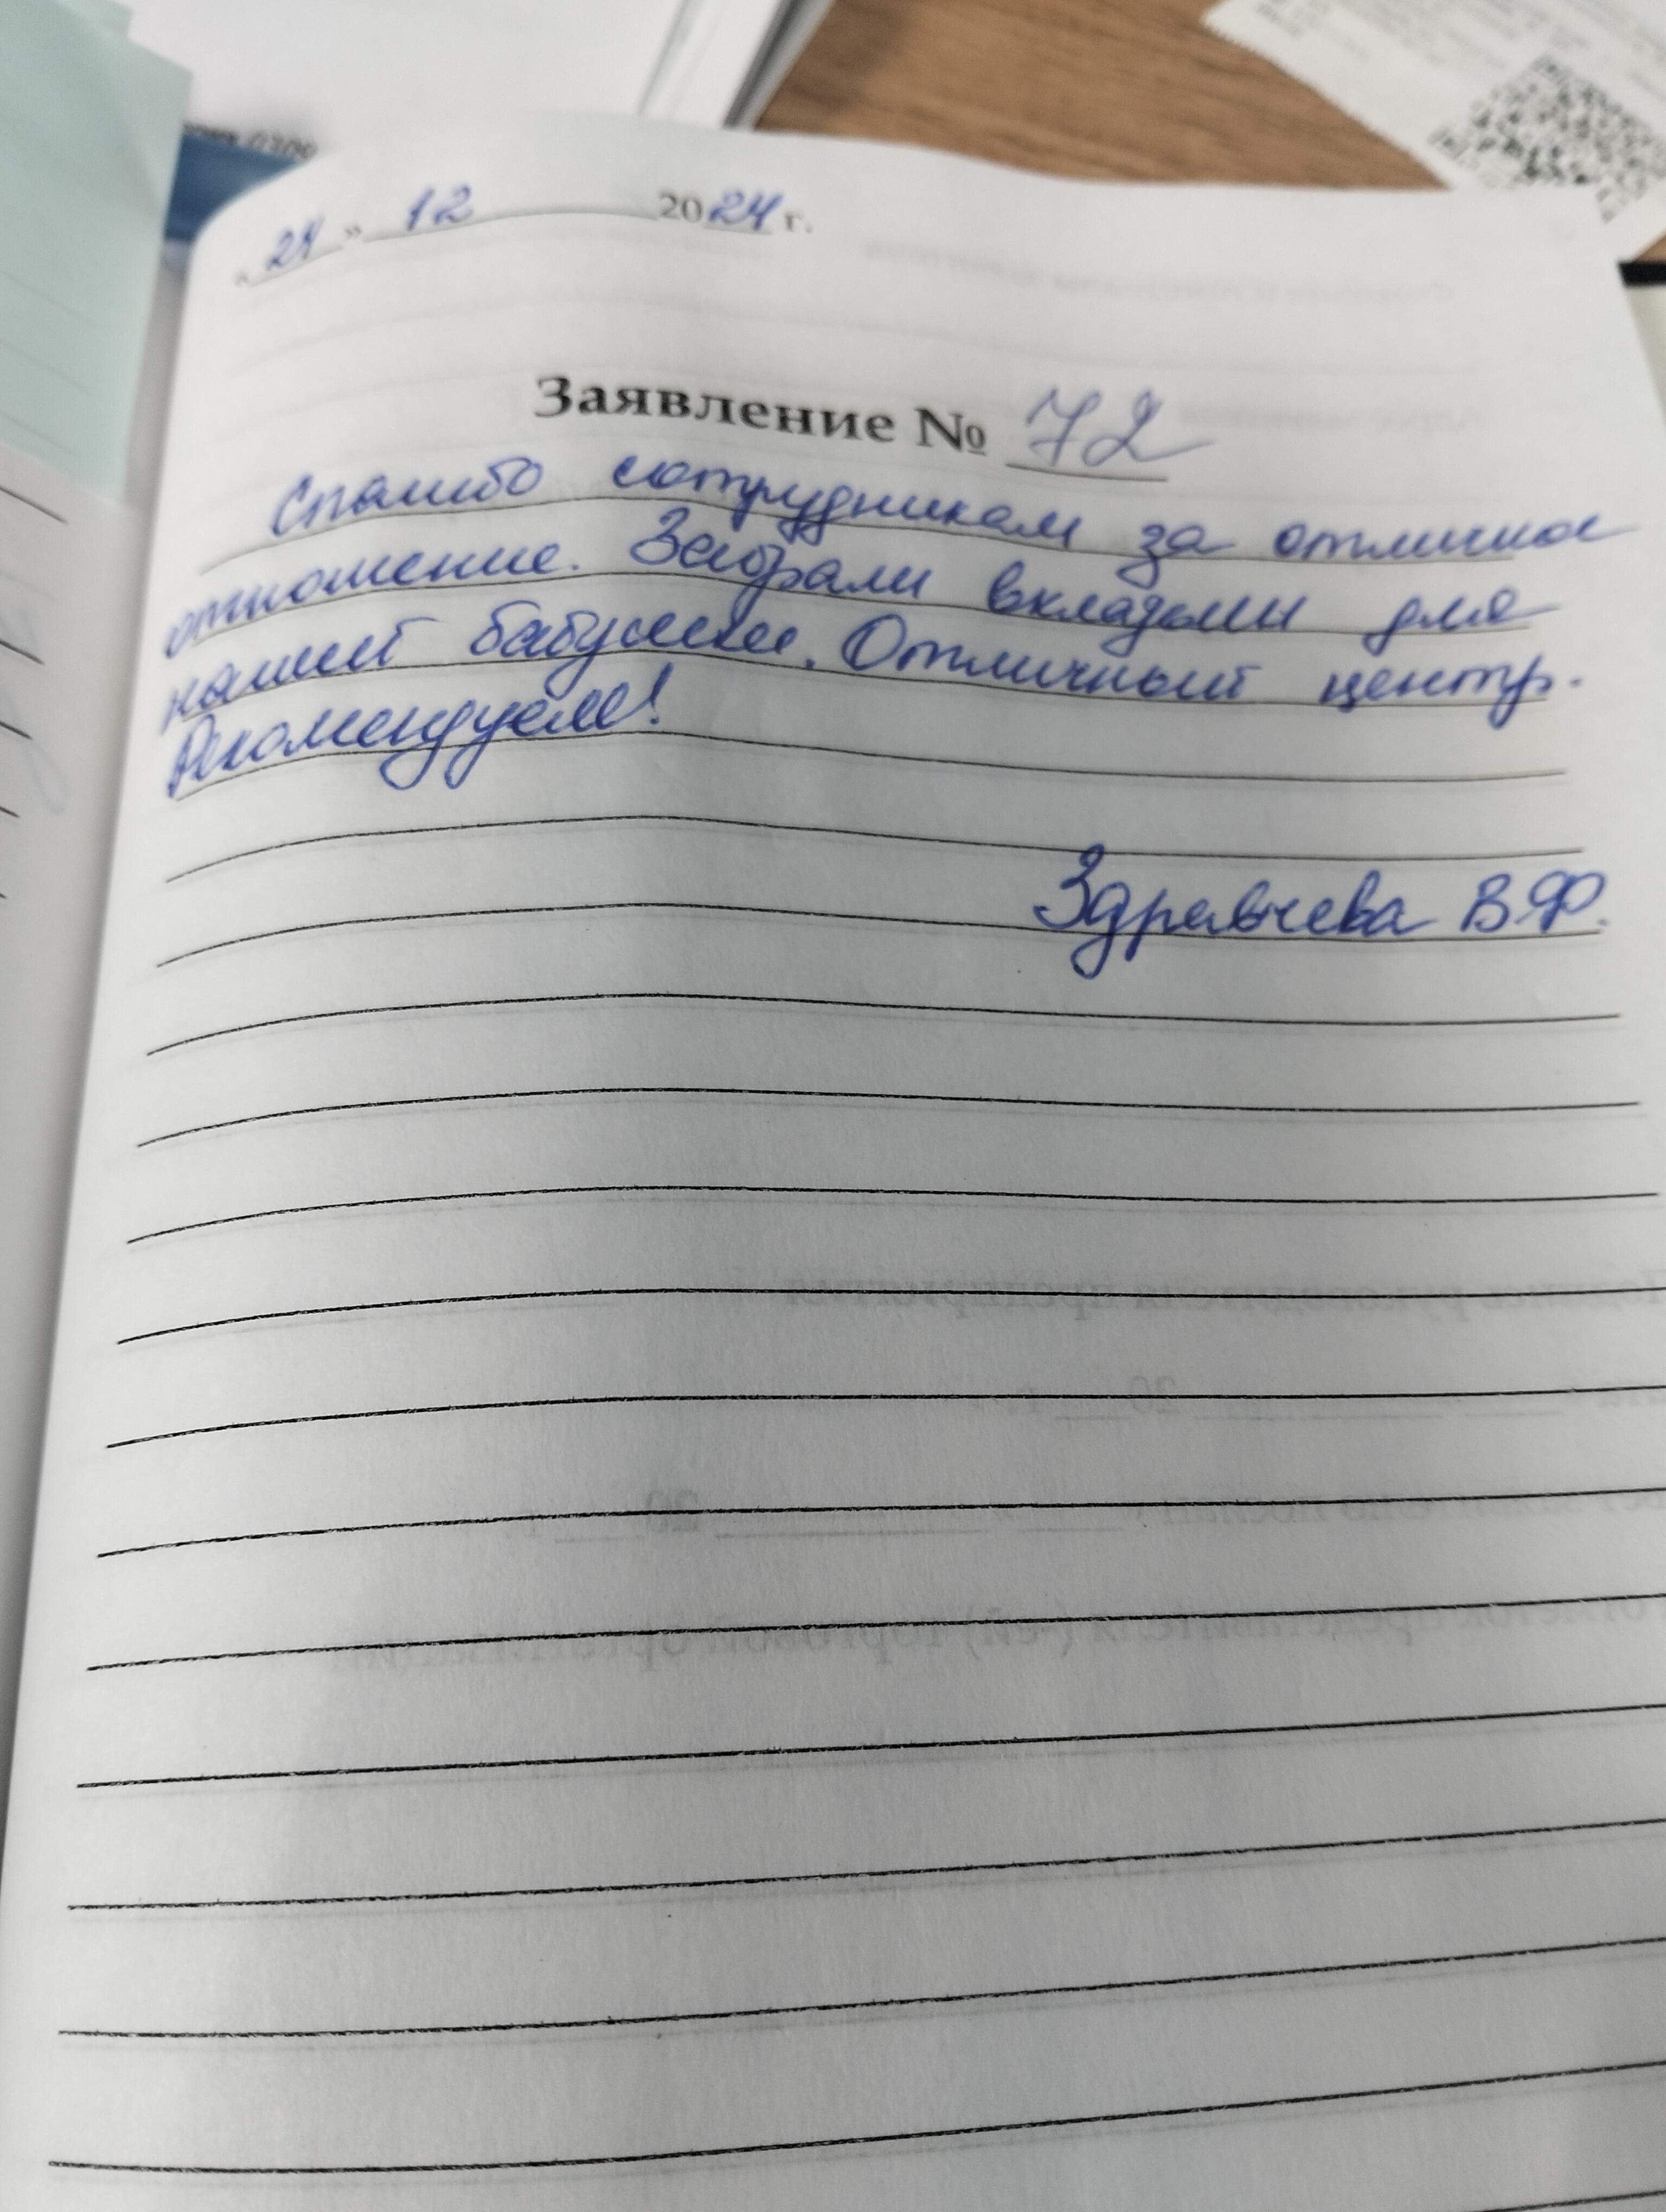 « 24 » 12 2024 г.
Заявление № 72
Спасибо сотрудникам за отличное
отношение. Забрали вкладыш для
нашей бабушки. Отличный центр.
Рекомендуем!
Здравчева В.Ф.